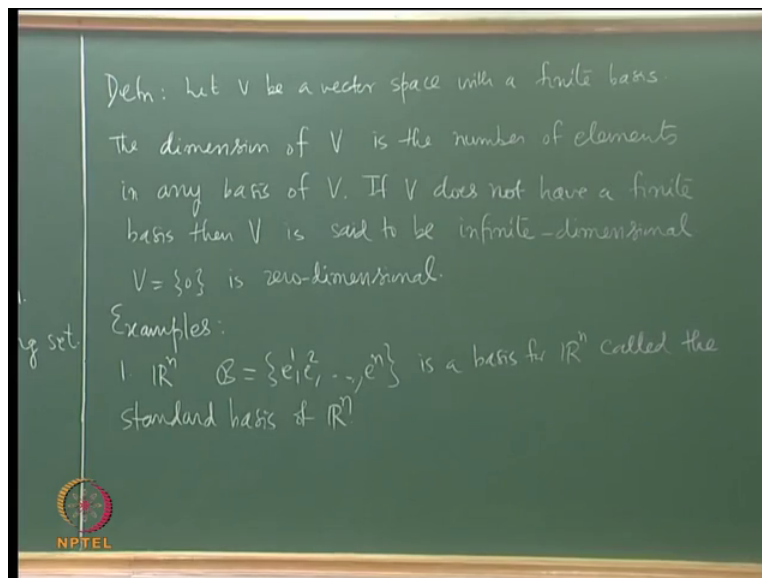 Defn: Let V be a vector space with a finite basis.
The dimension of V is the number of elements
in any basis of V. If V does not have a finite
basis then V is said to be infinite-dimensional
V = {0} is zero-dimensional.
Examples:
g set.
1. ℝⁿ ℬ = {e¹, e², ..., eⁿ} is a basis for ℝⁿ called the
standard basis of ℝⁿ
NPTEL